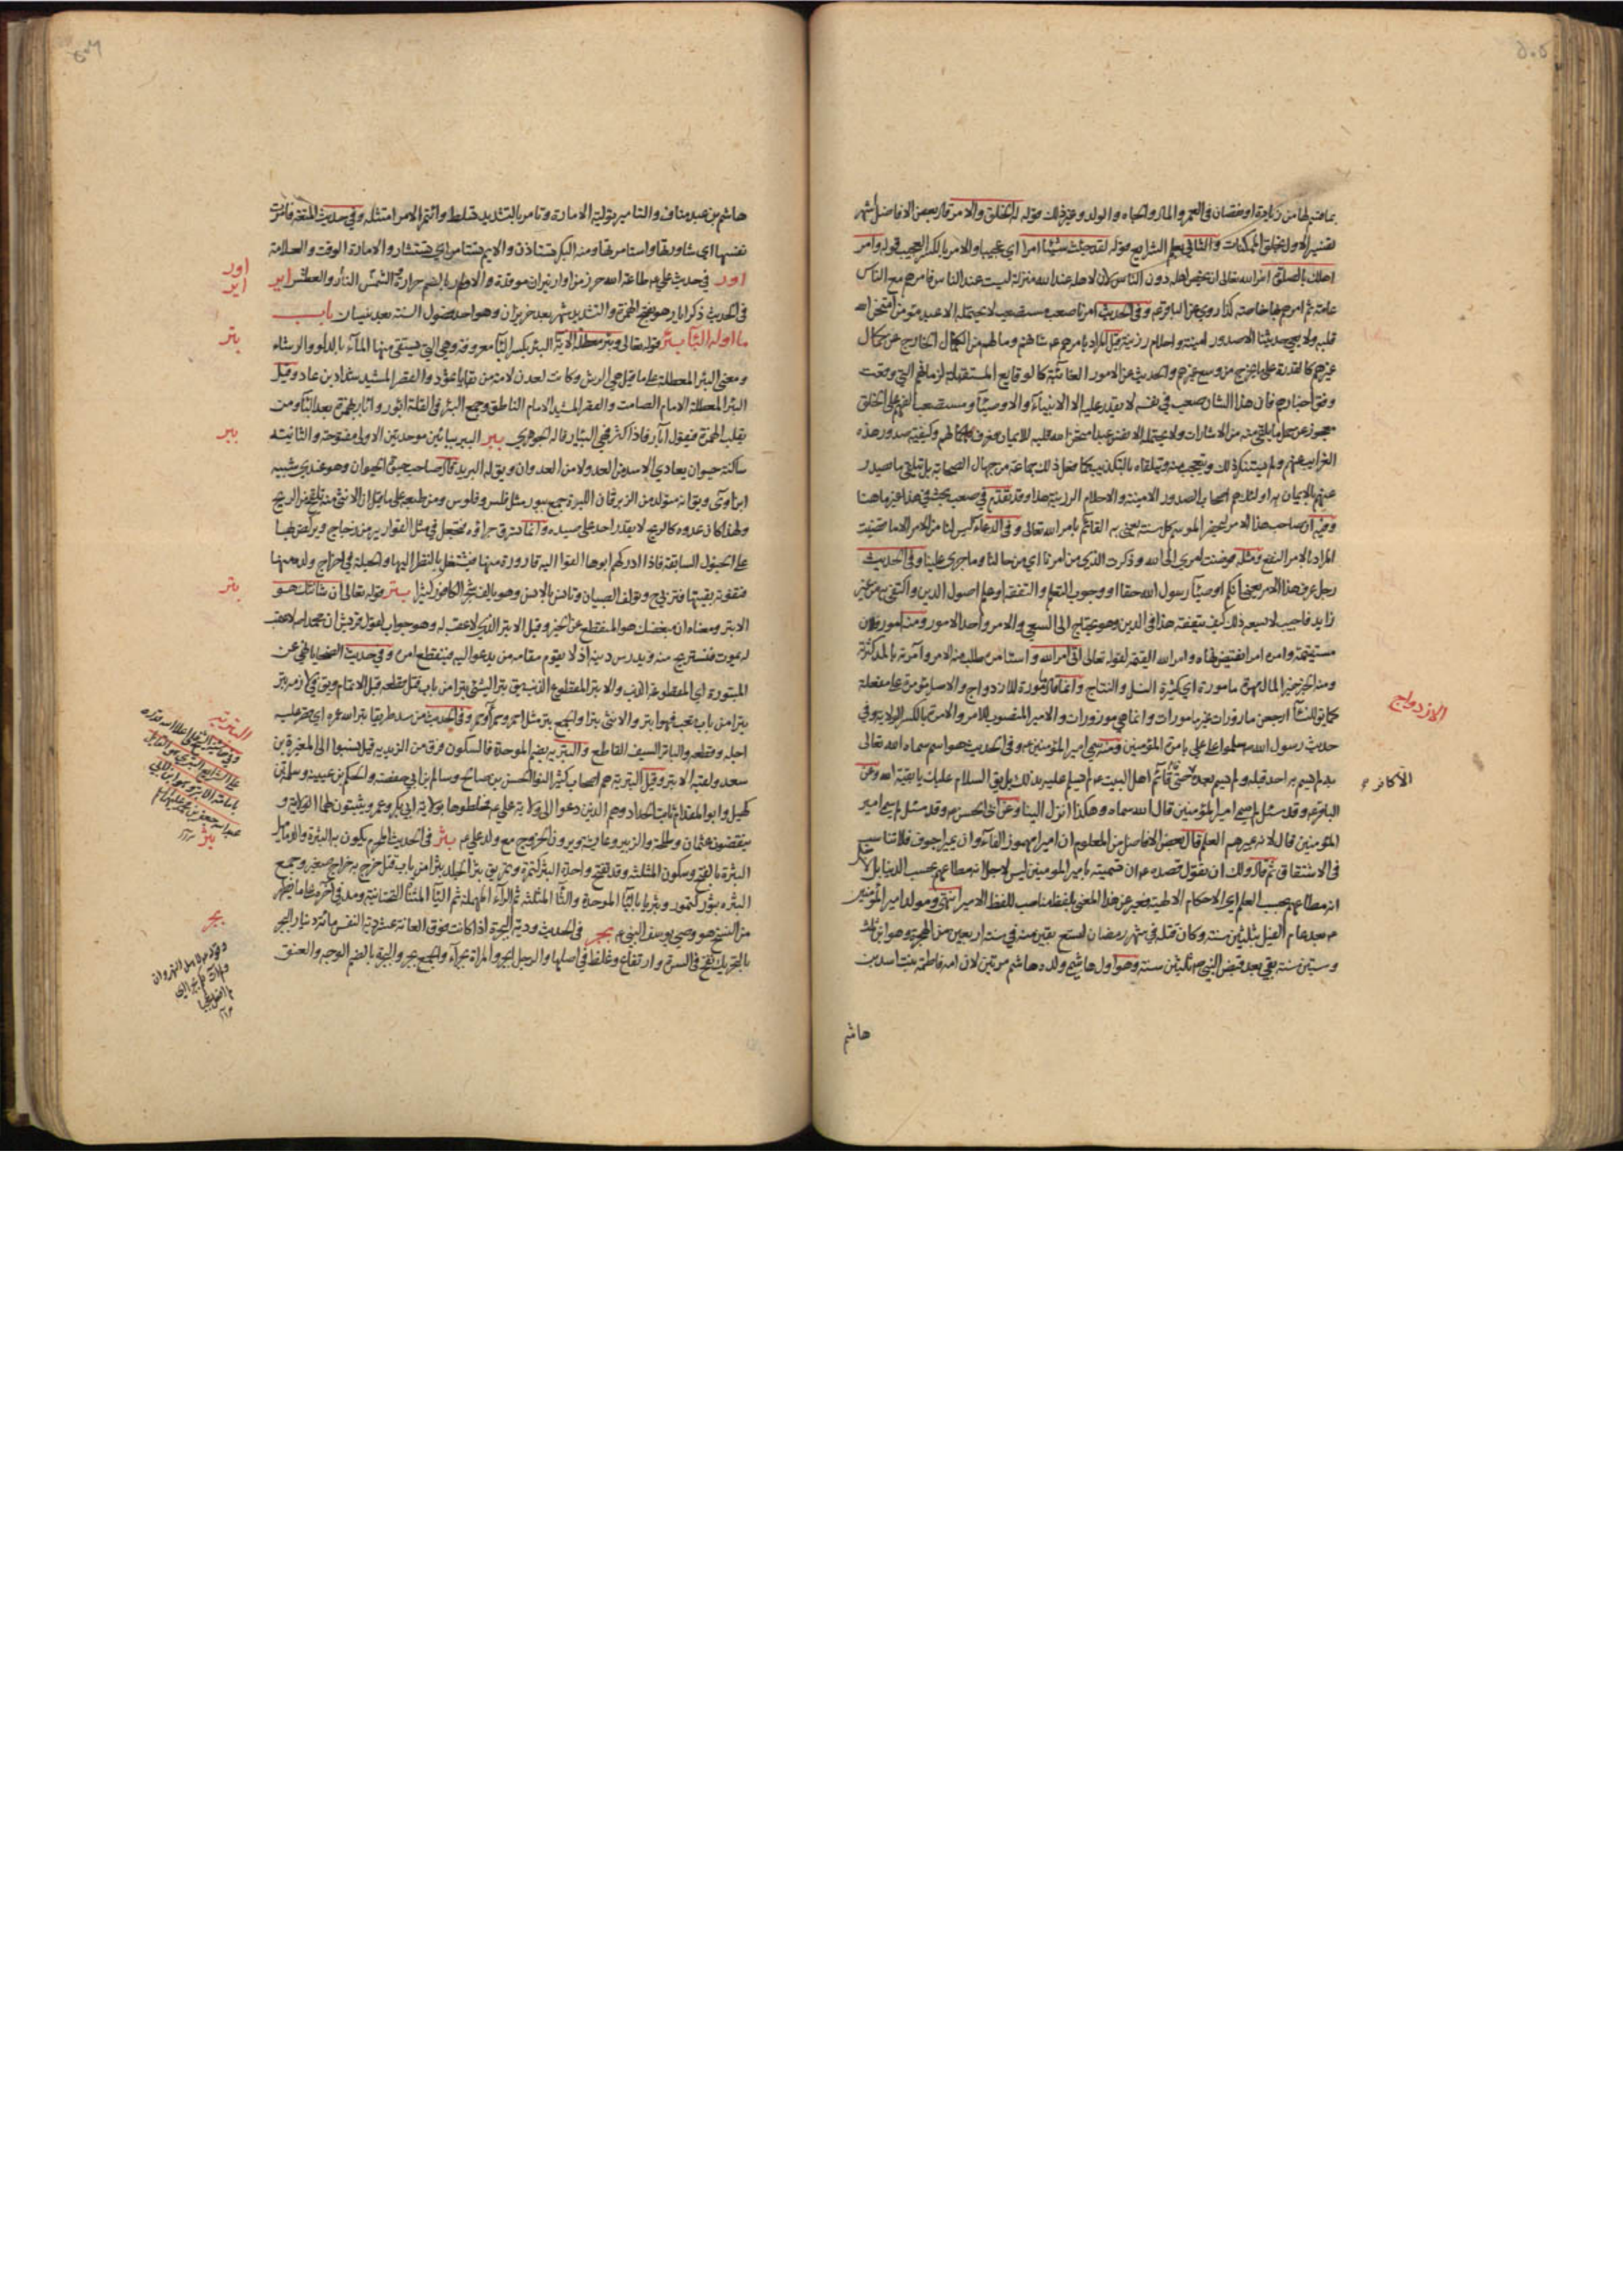 ٥٠٥
في العمر والمال والحياه والولد وغير ذلك قوله له الخلق والامر قال بعض الافاضل
الاول بخلق الممكنات والثاني بعلم الشرايع قوله لقد جئت شيئا امرا اي عجيبا والامر بالكسر العجيب قوله وامر
اهلك بالصلوة امر الله تعالى ان يخص اهله دون الناس لان لاهله عند الله منزلة ليست عند الناس فامرهم مع الناس
عامة ثم امرهم خاصة كذا روي عن الباقر ع وفي الحديث امرنا صعب مستصعب لا يحتمله الا عبد مؤمن امتحن الله
قلبه ولا يعي حديثنا الا صدور امينة واحلام رزينة قيل المراد بامرهم ع شانهم وما لهم من الكمال الخارج عن كمال
غيرهم كالقدرة على ما خرج من وسع غيرهم والحديث عن الامور الغائبة كالوقايع المستقبلة لزمانهم التي وقعت
وفق اخبارهم فان هذا الشان صعب في نفسه لا يقدر عليه الا الانبياء والاوصياء ومستصعب الفهم على الخلق
معجوز عن حمل ما يلقى منه من الاشارات ولا يحتمله الا نفس عبد امتحن الله قلبه للايمان فعرف كمالهم وكيفية صدور هذه
الغرايب عنهم ولم يستنكر ذلك ويتعجب منه ويتلقاه بالتكذيب كما فعل ذلك جماعة من جهال الصحابة بل يتلقى ما صدر
عنهم بالايمان به اولئك هم اصحاب الصدور الامينة والاحلام الرزينة هذا وقد تقدم في صعب بحث في هذا غير ما هنا
وفيه ان صاحب هذا الامر ليحضر الموسم كل سنة يعني به القائم بامر الله تعالى وفي الدعاء ليس لنا من الامر الا ما قضيت
المراد بالامر النفع ومثله فوضت امري الى الله وذكرت الذي من امرنا اي من حالنا وما جرى علينا وفي الحديث
رجل عرف هذا الامر يعني انكم اوصياء رسول الله حقا او وجوب التعلم والتفقه او علم اصول الدين واكتفى به عن غير
زايد فاجيب لا يسعه ذلك كيف يتفقه هذا في الدين وهو يحتاج الى السعي والامر واحد الامور ومنه امور فلان
مستقيمة وامره امرا نقيض نهاه وامر الله القيمة لقوله تعالى اتى امر الله واستامره طلب منه الامر وآمرته بالمد كثرته
ومنه الخبر خير المال مهرة مامورة اي كثيرة النسل والنتاج وانما قال مامورة للازدواج والاصل مؤمرة على مفعلة
كما قيل للنساء ارجعن مازورات غير ماجورات وانما هي موزورات والامير المنصوب للامر والامرة بالكسر الولاية وفي
حديث رسول الله سلموا على علي بامرة المؤمنين ومنه سمي امير المؤمنين ع وفي الحديث هو اسم سماه الله تعالى
به لم يسم به احد قبله ولم يتسم بعده حتى قائم اهل البيت ع لم يسلم عليه بذلك بل يق السلام عليك يا بقية الله وعن
الباقر ع وقد سئل لم سمي امير المؤمنين قال الله سماه وهكذا انزل الينا وعن ابي الحسن ع وقد سئل لم سمي امير
المؤمنين قال لانه يميرهم العلم قال بعض الافاضل من المعلوم ان امير مهموز الفاء وان يمير اجوف فلا تناسب
في الاشتقاق ثم قال ولك ان تقول قصده ع ان تسميته بامير المومنين ليس لاجل انه مطاعهم بحسب الدنيا بل لاجل
انه مطاعهم بحسب العلم اي الاحكام الالهية فعبر عن هذا المعنى بلفظ مناسب للفظ الامير انتهى ومولد امير المؤمنين
ع بعد عام الفيل بثلثين سنة وكان قتله في شهر رمضان لتسع بقين منه في سنة اربعين من الهجرة وهو ابن ثلث
وستين سنة بقي بعد قبض النبي ص ثلثين سنة وهو اول هاشمي ولده هاشم مرتين لان امه فاطمة بنت اسد بن
هاشم
الازدواج
الا كافر
٥٠٦
هاشم بن عبد مناف والتامير تولية الامارة وتامر بالتشديد تسلط وائتمر الامر امتثله وفي حديث المتعة فامرت
نفسها اي شاورتها واستامرتها ومنه البكر تستاذن والايم تستامر اي تستشار والامارة الوقت والعلامة
اور في حديث علي ع طاعة الله حرز من اوار نيران موقدة والاوار بالضم حرارة الشمس والنار والعطش اير
في الحديث ذكر ايار هو بفتح الهمزة والتشديد شهر بعد وهو احد فصول السنة بعد نيسان باب
ما اوله البآ بئر قوله تعالى وبئر معطلة الاية البئر بكسر البآ معروفة وهي التي يستقى منها المآء بالدلو والرشاء
ومعنى البئر المعطلة على ما قيل هي الرس وكانت لعدن لامة من بقايا ثمود والقصر المشيد شداد بن عاد وقيل
البئر المعطلة الامام الصامت والقصر المشيد الامام الناطق وجمع البئر في القلة ابؤر وابآر بهمزة بعد البآ ومن
يقلب الهمزة فيقول آبار فاذا كثرت فهي البئار قاله الجوهري ببر الببر ببائين موحدتين الاولى مفتوحة والثانية
ساكنة حيوان يعادي الاسد من العدو لا من العدوان ويق له البريد قال صاحب حيوة الحيوان وهو هندي شبيه
ابن آوى ويق انه متولد من الزبرقان اللبوة جمع ببور مثل فلس وفلوس ومن طبعه على ما قيل ان الانثى منه تلقح من الريح
ولهذا كان عدوه كالريح لا يقدر احد على صيده وانما تسرق جراؤه فتجعل في مثل القوارير من زجاج ويركض بها
على الخيول السابقة فاذا ادركهم ابوها القوا اليه قارورة منها فيشتغل بالنظر اليها والحيلة في اخراج ولده منها
فتفوته بقيتها فتربى وتالف الصبيان وتانس بالانس وهو يالف شجر الكافور كثيرا بتر قوله تعالى ان شانئك هو
الابتر ومعناه ان مبغضك هو المنقطع عن الخير وقيل الابتر الذي لا عقب له وهو جواب لقول قريش ان محمدا لا عقب
له يموت فنستريح منه ويدرس دينه اذ لا يقوم مقامه من يدعو اليه فينقطع امره وفي حديث الضحايا نهى عن
المبتورة اي المقطوعة الذنب والابتر المقطوع الذنب يق بترت الشئ بترا من باب قتل قطعته قبل الاتمام ويق في لازمه بتر
بترا من باب تعب فهو ابتر والانثى بترا والجمع بتر مثل احمر وحمرآء وحمر وفي الحديث من سد طريقا بتر الله عمره اي قصر عليه
اجله وقطعه والباتر السيف القاطع والبترية بضم الموحدة فالسكون فرق من الزيدية قيل نسبوا الى المغيرة بن
سعد ولقبه الابتر وقيل البترية هم اصحاب كثير النوا الحسن بن صالح وسالم بن ابي حفصة والحكم بن عيينة وسلمة بن
كهيل وابو المقدام ثابت الحداد وهم الذين دعوا الى ولاية علي ع فخلطوها بولاية ابي بكر وعمر ويثبتون لهما الولاية و
يبغضون عثمان وطلحة والزبير وعايشة ويرون الخروج مع ولد علي ع بثر في الحديث المحرم يكون به البثرة والدماميل
البثرة بالفتح وسكون المثلثة وقد تفتح واحدة البثر كتمرة وتمر يق بثر الجلد بثرا من باب قتل خرج به خراج صغير وجمع
البثره بثور كتمور وبثريا بالبآ الموحدة والثآ المثلثة ثم الرآء المهملة ثم اليآ المثناة التحتانية ومد في آخره على ما ظهر
من النسخ هو وصي يوسف النبي ع بجر في الحديث ودية البجرة اذا كانت فوق العانة عشر دية النفس مائة دينار البجر
بالتحريك نفخ في السرة وارتفاع وغلظ في اصلها والرجل ابجر والمراة بجرآء والجمع بجر والبجرة بالضم الوجه والعنق
اور
اير
بئر
ببر
بتر
البترية
بثر
بجر